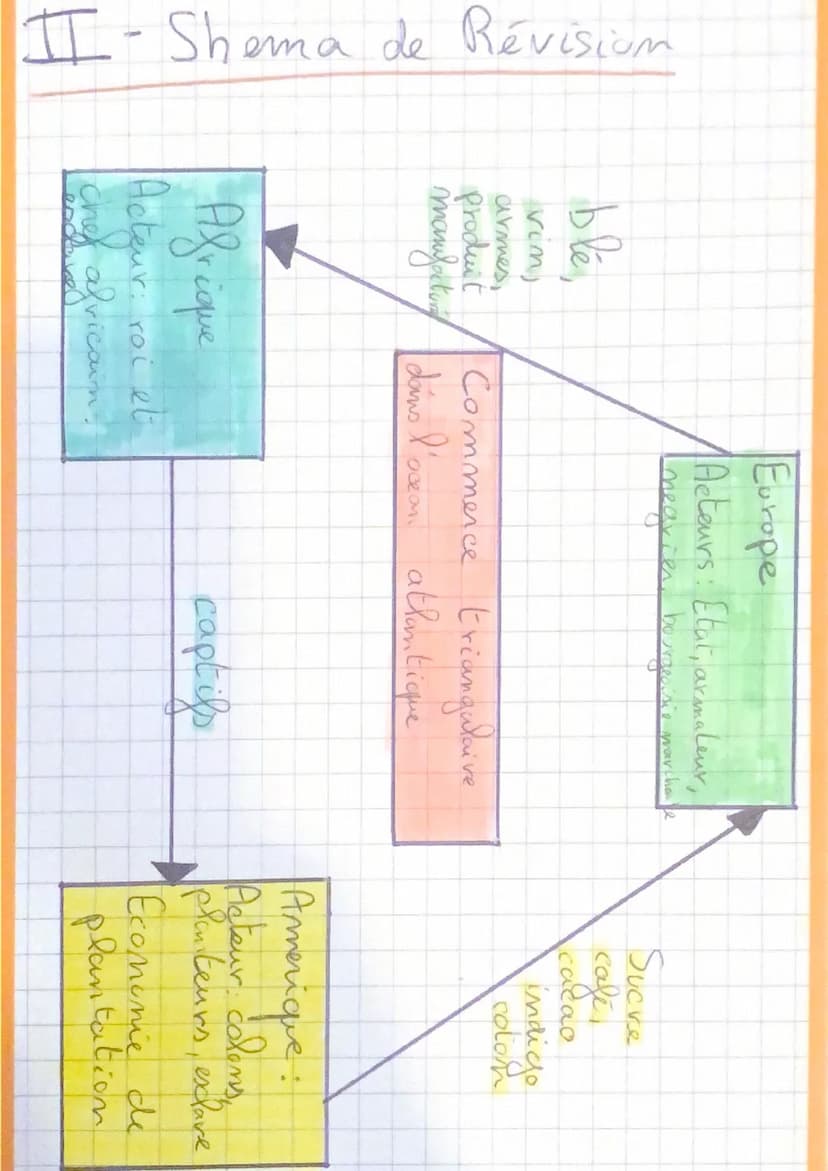 II - Shema de Révision
Europe
Acteurs: Etat, armateur,
negrier, bourgeoisie marchande
blé,
vin,
armes,
produit
Commerce triangulaire
dans l'océan atlantique
Sucre
café,
cacao
indigo
coton
Afrique
Acteur: roi et
chef africain.
captifs
Amerique:
Acteur: colons,
planteurs, esclave
Economie de
plantation